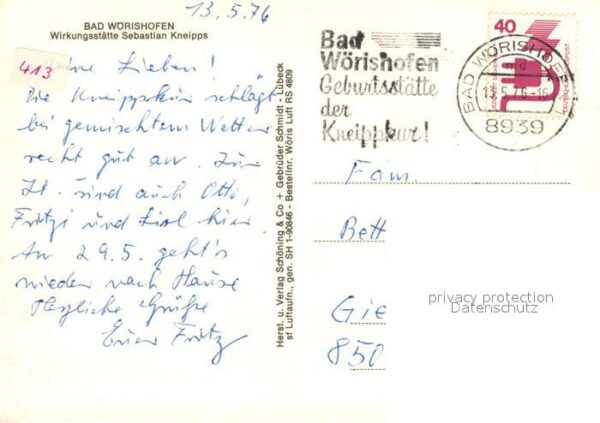 13.5.76
BAD WÖRISHOFEN
Wirkungsstätte Sebastian Kneipps
413
Meine Lieben!
Die Kneippkur schlägt
bei gemischtem Wetter
recht gut an. Zur
Zt. sind auch Otto,
Fritzi und Lisl hier
Am 29.5. geht's
wieder nach Hause
Herzliche Grüße
Euer Fritz
Herst. u. Verlag Schöning & Co + Gebrüder Schmidt - Lübeck
sf Luftaufn., gen. SH 1-90846 - Bestellnr. Wöris Luft RS 4809
Bad
Wörishofen
Geburtsstätte
der
Kneippkur!
40
BAD WÖRISHOFEN
md
13.5.76-16
8939
Fam.
Bett
Gie
850
privacy protection
Datenschutz